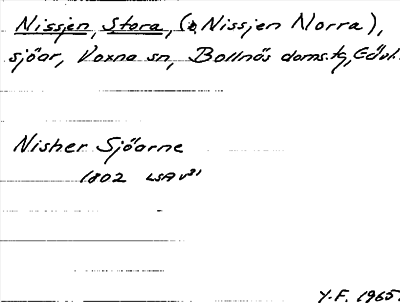 Nissjen, Stora, (o, Nissjen Norra),
sjöar, Voxna sn, Bollnäs doms.tg, Gävl.
Nisher Sjöarne
1802 LSA V31
Y.F. 1965.